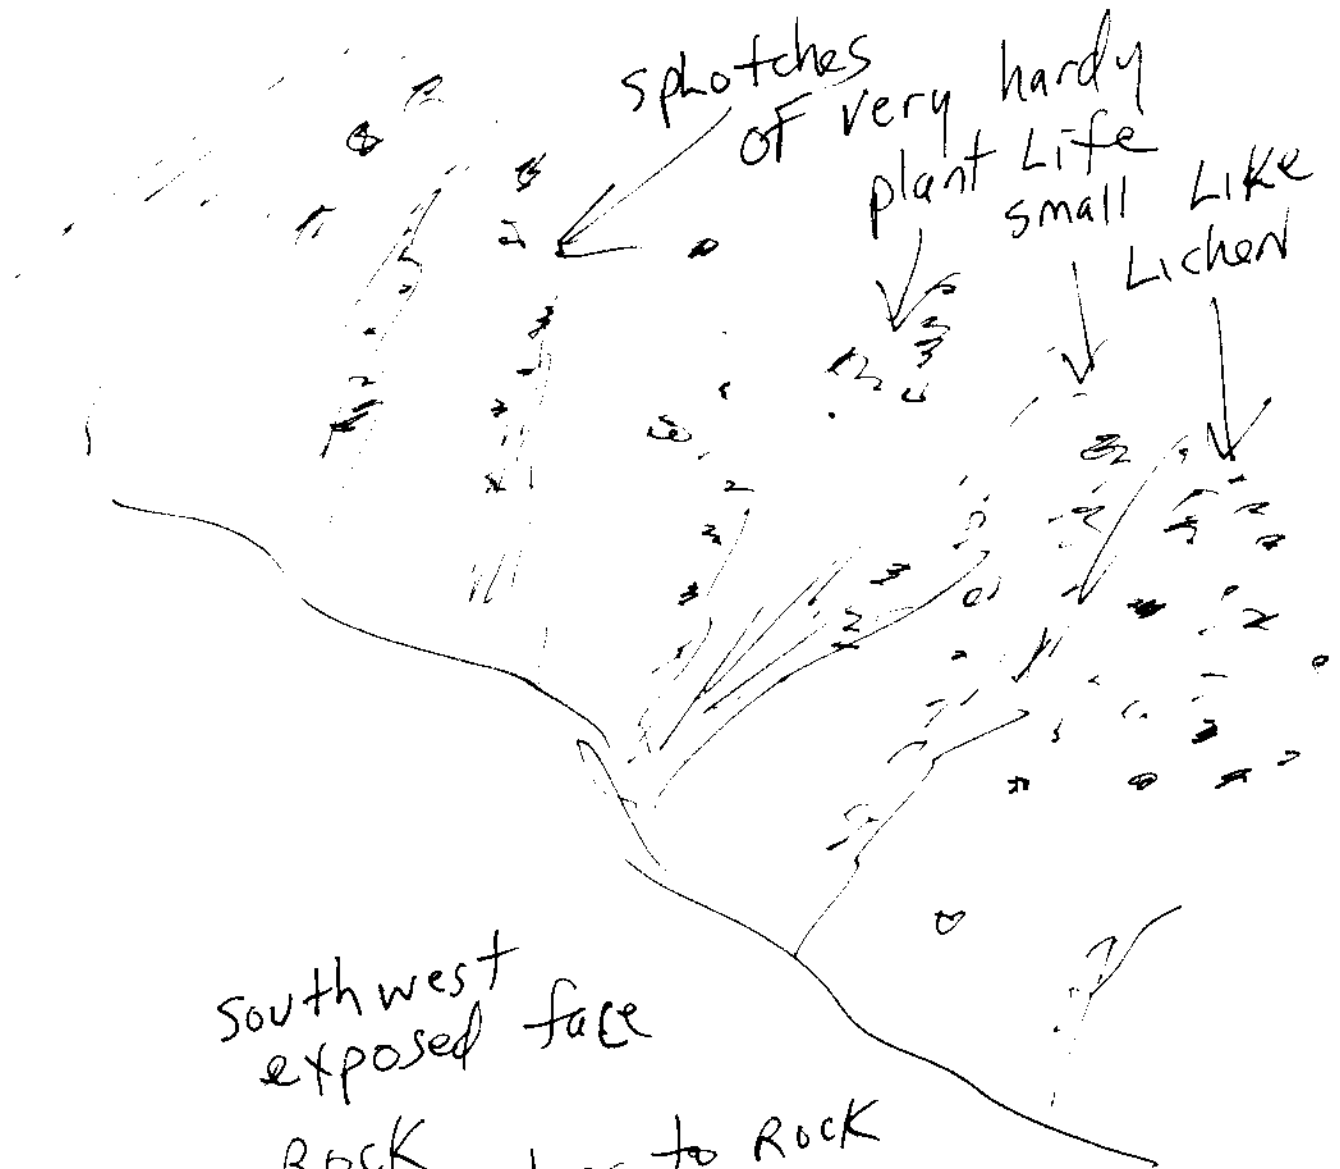 splotches
of very hardy
plant Life
small Like
Lichen
southwest
exposed face
Rock to Rock